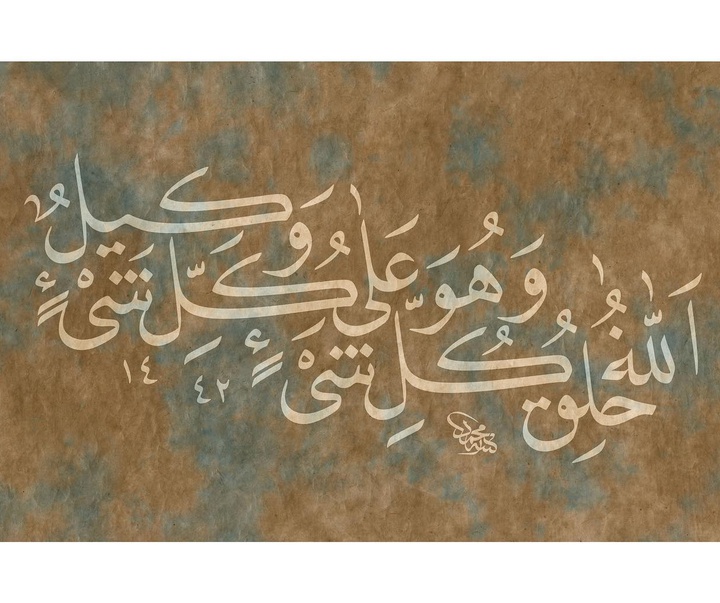 اَللّٰهُ خٰلِقُ كُلِّ شَىْءٍ
وَهُوَ عَلٰى كُلِّ شَىْءٍ وَكِيلٌ
١٤٤٢